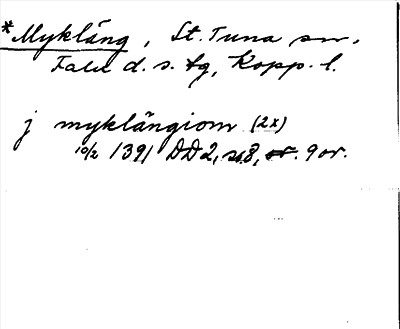 *Mykläng, St. Tuna sn,
Falu d. s. tg, Kopp. l.
j myklängiom (2x)
10/2 1391 DD 2, s. 8, or. 9 or.